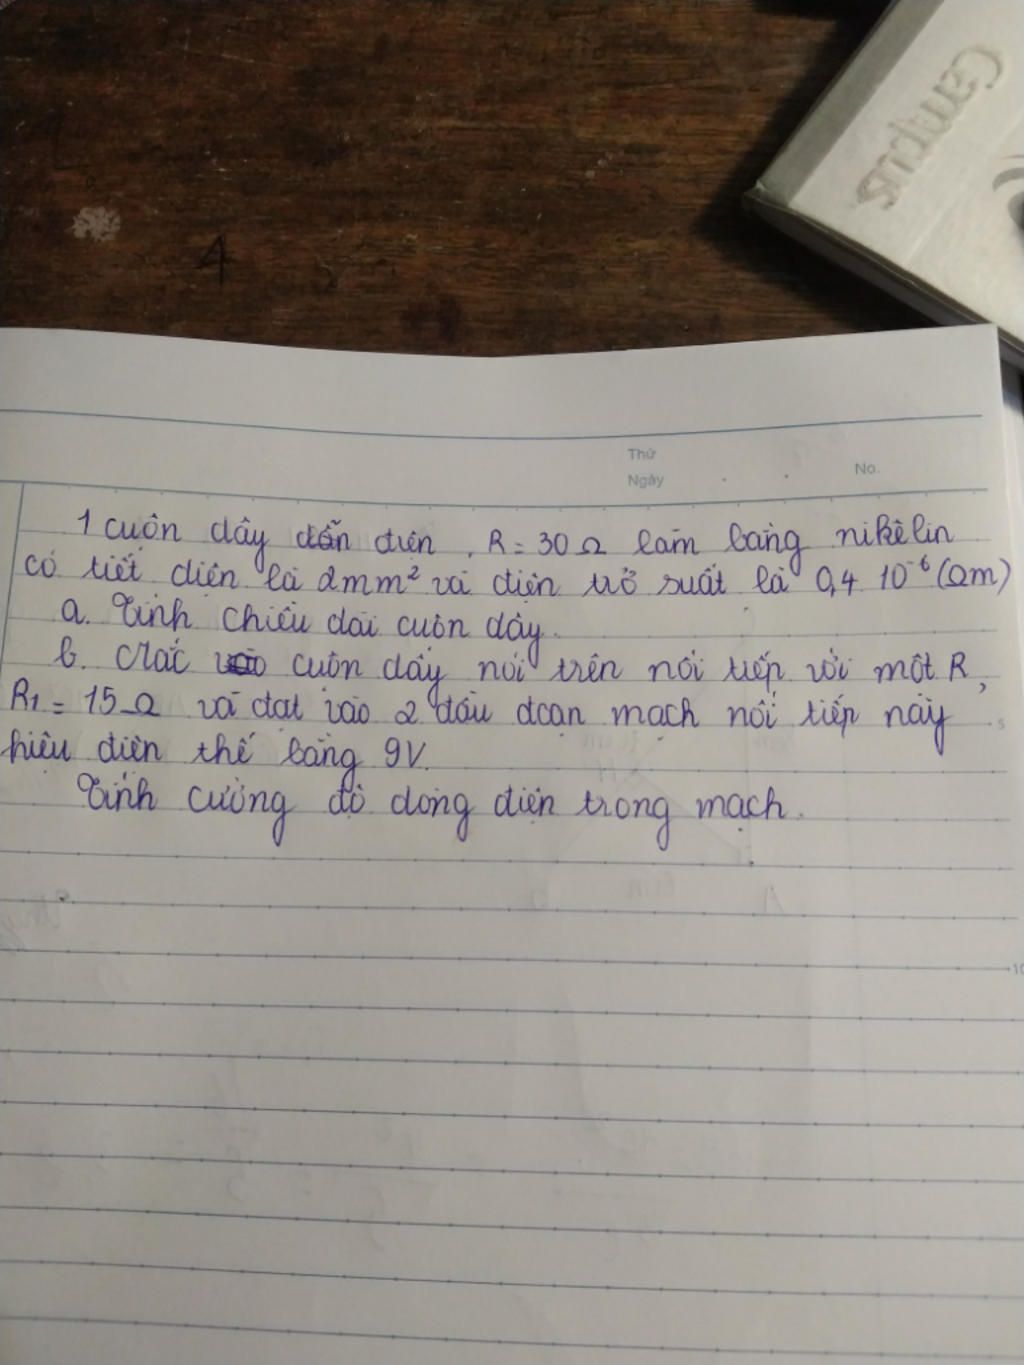 Campus
Thứ
Ngày
No.
1 cuộn dây dẫn điện, R = 30 Ω làm bằng nikêlin
có tiết diện là 2mm² và điện trở suất là 0,4 10⁻⁶ (Ωm)
a. Tính chiều dài cuộn dây.
b. Mắc cuộn dây nói trên nối tiếp với một R,
R1 = 15 Ω và đặt vào 2 đầu đoạn mạch nối tiếp này
hiệu điện thế bằng 9V.
Tính cường độ dòng điện trong mạch.
5
10